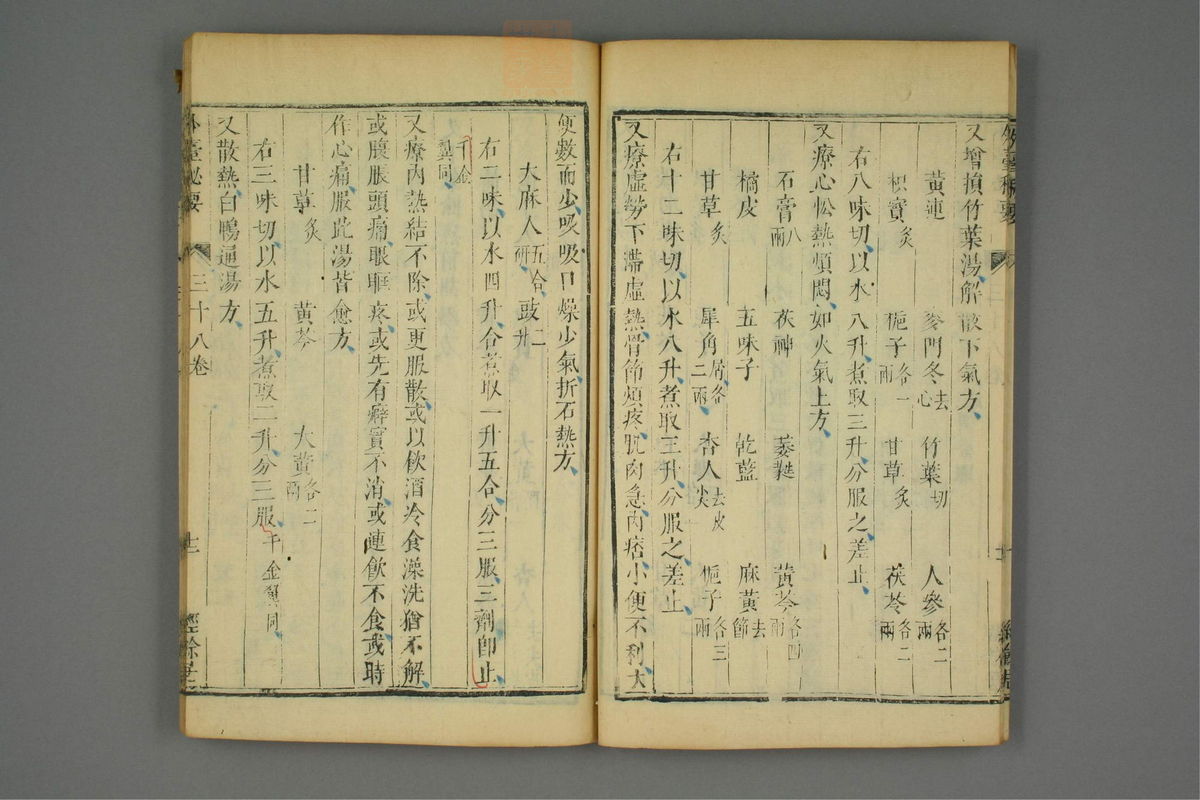 又增損竹葉湯解散下氣方
黃連 麥門冬去心 竹葉切 人參各二兩
枳實炙 梔子各一兩 甘草炙 茯苓各二兩
右八味切以水八升煮取三升分服之差止
又療心忪熱煩悶如火氣上方
石膏八兩 茯神 萎蕤 黃芩各四兩
橘皮 五味子 乾藍 麻黃去節
甘草炙 犀角屑各二兩 杏人去皮尖 梔子各三兩
右十二味切以水八升煮取三升分服之差止
又療虛勞下滯虛熱骨節煩疼肌肉急內痞小便不利大
便數而少吸吸口燥少氣折石熱方
大麻人五合研 豉二升
右二味以水四升合煮取一升五合分三服三劑卽止
千金翼同
又療內熱結不除或更服散或以飲酒冷食澡洗猶不解
或腹脹頭痛眼眶疼或先有癖實不消或連飲不食或時
作心痛服此湯皆愈方
甘草炙 黃芩 大黃各二兩
右三味切以水五升煮取二升分三服千金翼同
又散熱白鴨通湯方
外臺秘要 三十八卷 十二 經餘居